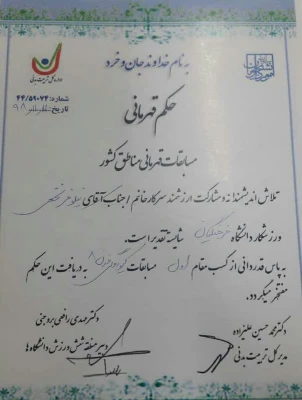 به نام خداوند جان و خرد
اداره کل تربیت بدنی
شماره: ۴۴/۵۹۰۷۴
تاریخ: ۹۸
حکم قهرمانی
مسابقات قهرمانی مناطق کشور
تلاش اندیشمندانه و مشارکت ارزشمند سرکار خانم / جناب آقای
ورزشکار دانشگاه فرهنگیان شایسته تقدیر است.
به پاس قدردانی از کسب مقام اول مسابقات به دریافت این حکم
مفتخر میگردد.
دکتر محمد حسین علیزاده
مدیر کل تربیت بدنی
دکتر مهدی رافعی بروجنی
دبیر منطقه شش ورزش دانشگاه‌ها